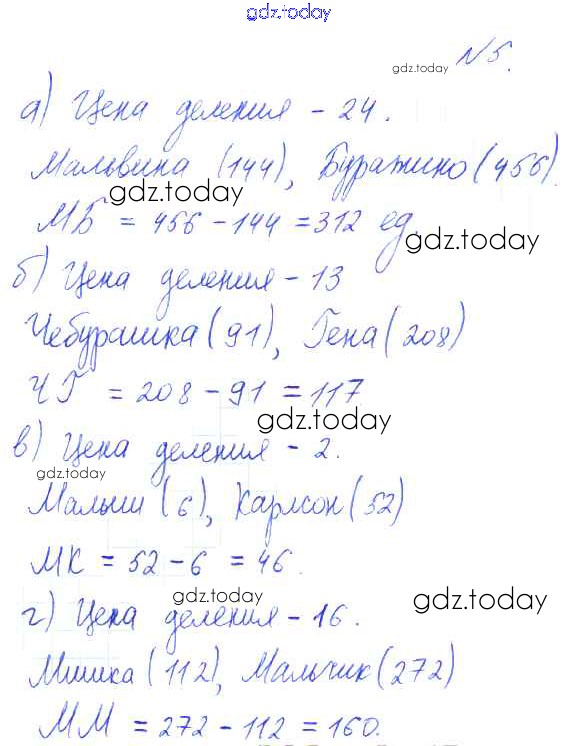 gdz.today
gdz.today №5.
а) Цена деления - 24.
Мальвина (144), Буратино (456).
gdz.today
МБ = 456 - 144 = 312 ед.
gdz.today
б) Цена деления - 13
Чебурашка (91), Гена (208)
ЧГ = 208 - 91 = 117
gdz.today
в) Цена деления - 2.
gdz.today
Малыш (6), Карлсон (52)
МК = 52 - 6 = 46.
gdz.today
gdz.today
г) Цена деления - 16.
Мишка (112), Мальчик (272)
ММ = 272 - 112 = 160.